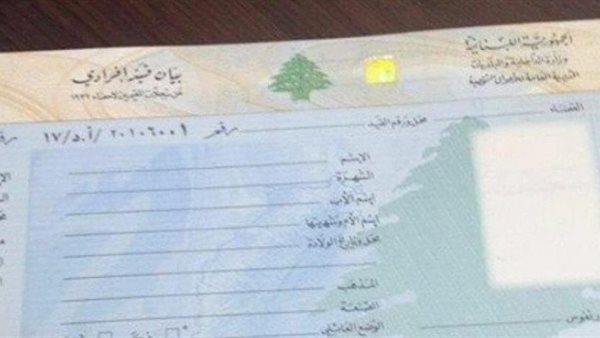 الجمهورية اللبنانية
وزارة الداخلية والبلديات
المديرية العامة للأحوال الشخصية
بيان قيد إفرادي
عن سجلات المقيمين لإحصاء ١٩٣٢
القضاء
محل ورقم القيد
رقم ٢٠١٠٦٠٠١ /أ.د/ ١٧
الإسم
الشهرة
إسم الأب
إسم الأم وشهرتها
محل وتاريخ الولادة
المذهب
الصنعة
الوضع العائلي